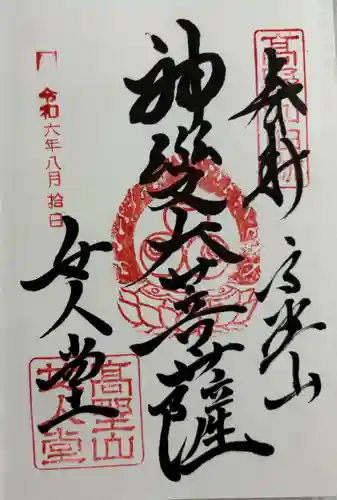 奉拝 高野山
神變大菩薩
女人堂
令和六年八月拾日
高野山
女人堂